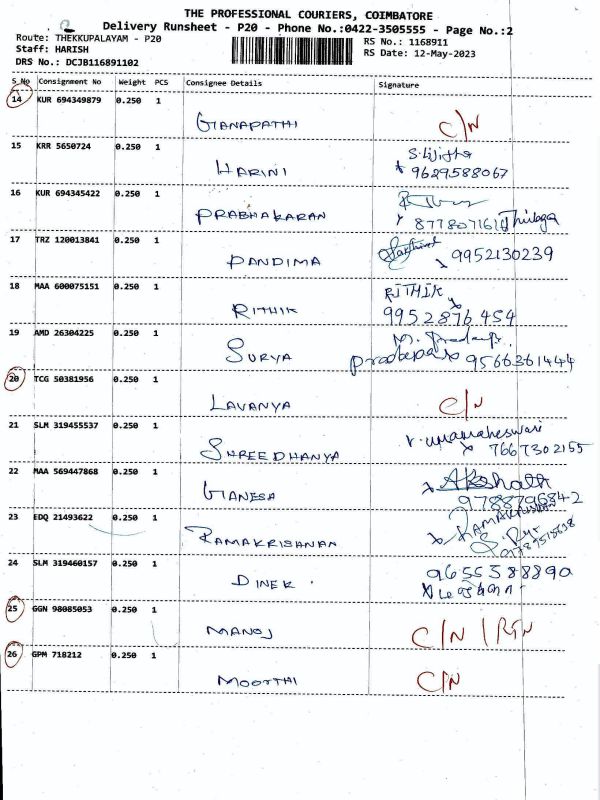 THE PROFESSIONAL COURIERS, COIMBATORE
Delivery Runsheet - P20 - Phone No.:0422-3505555 - Page No.:2
Route: THEKKUPALAYAM - P20
RS No.: 1168911
Staff: HARISH
RS Date: 12-May-2023
DRS No.: DCJB116891102
S_No Consignment No Weight PCS Consignee Details Signature
14 KUR 694349879 0.250 1
GANAPATHI C/N
15 KRR 5650724 0.250 1
HARINI 9629588067
16 KUR 694345422 0.250 1
PRABHAKARAN
17 TRZ 120013841 0.250 1
PANDIMA 9952130239
18 MAA 600075151 0.250 1 RITHIK
RITHIK 9952876454
19 AMD 26304225 0.250 1
SURYA 9566361444
20 TCG 50381956 0.250 1
LAVANYA C/N
21 SLM 319455537 0.250 1 v. umamaheswari
SHREEDHANYA 7667302155
22 MAA 569447868 0.250 1 Akshath
GANESA 9788796842
23 EDQ 21493622 0.250 1 RAMAKRISHNAN
RAMAKRISHNAN
24 SLM 319460157 0.250 1 9655388890
DINEK
25 GGN 98085053 0.250 1
MANOJ C/N / RTN
26 GPM 718212 0.250 1
MOORTHI C/N